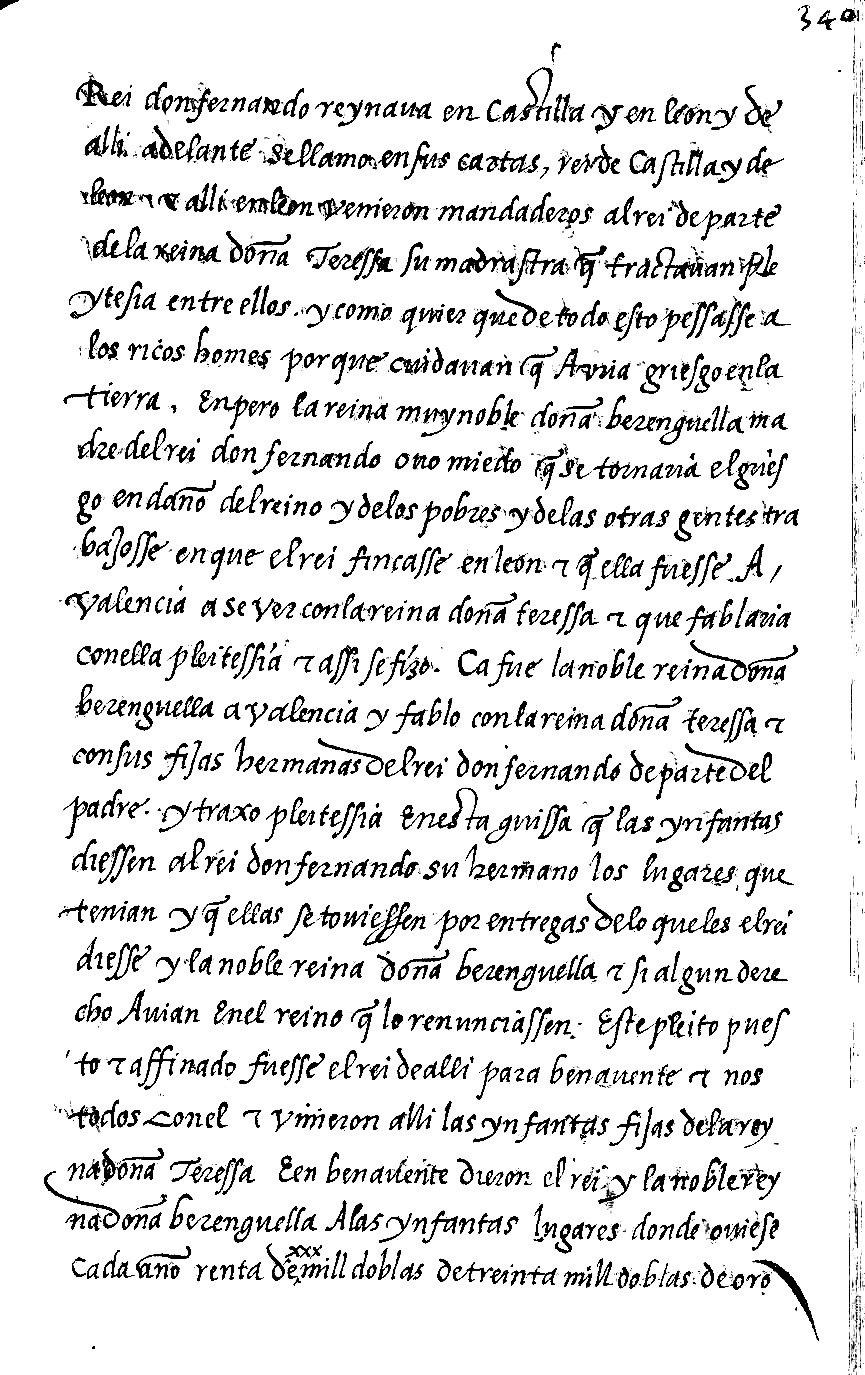 340
Rei don fernando reynaua en Castilla y en leon y de
alli adelante se llamo en sus cartas, rei de Castilla y de
leon. τ alli en leon venieron mandaderos al rei de parte
de la reina doña Teressa su madrastra q̃ tractauan ple
ytesia entre ellos. y como quier que de todo esto pessasse a
los ricos homes porque cuidauan q̃ Auria griesgo en la
tierra. Enpero la reina muy noble doña berenguella ma
dre del rei don fernando ouo miedo q̃ se tornaria el gries
go en daño del reino y de los pobres y de las otras gentes tra
bajosse en que el rei fincasse en leon τ q̃ ella fuesse A,
valencia a se ver con la reina doña teressa τ que fablaria
con ella pleitessia τ assi se fizo. Ca fue la noble reina doña
berenguella a valencia y fablo con la reina doña teressa τ
con sus fijas hermanas del rei don fernando de parte del
padre. y traxo pleitessia En esta guissa q̃ las ynfantas
diessen al rei don fernando su hermano los lugares que
tenian y q̃ ellas se touiessen por entregas de lo que les el rei
diesse y la noble reina doña berenguella τ si algun dere
cho Auian En el reino q̃ lo renunciassen. Este pleito pues
to τ affinado fuesse el rei de alli para benauente τ nos
todos con el τ vinieron alli las ynfantas fijas de la rey
na doña Teressa E en benauente dieron el rei y la noble rey
na doña berenguella A las ynfantas lugares donde ouiese
Cada año renta de xxx mill doblas de treinta mill doblas de oro